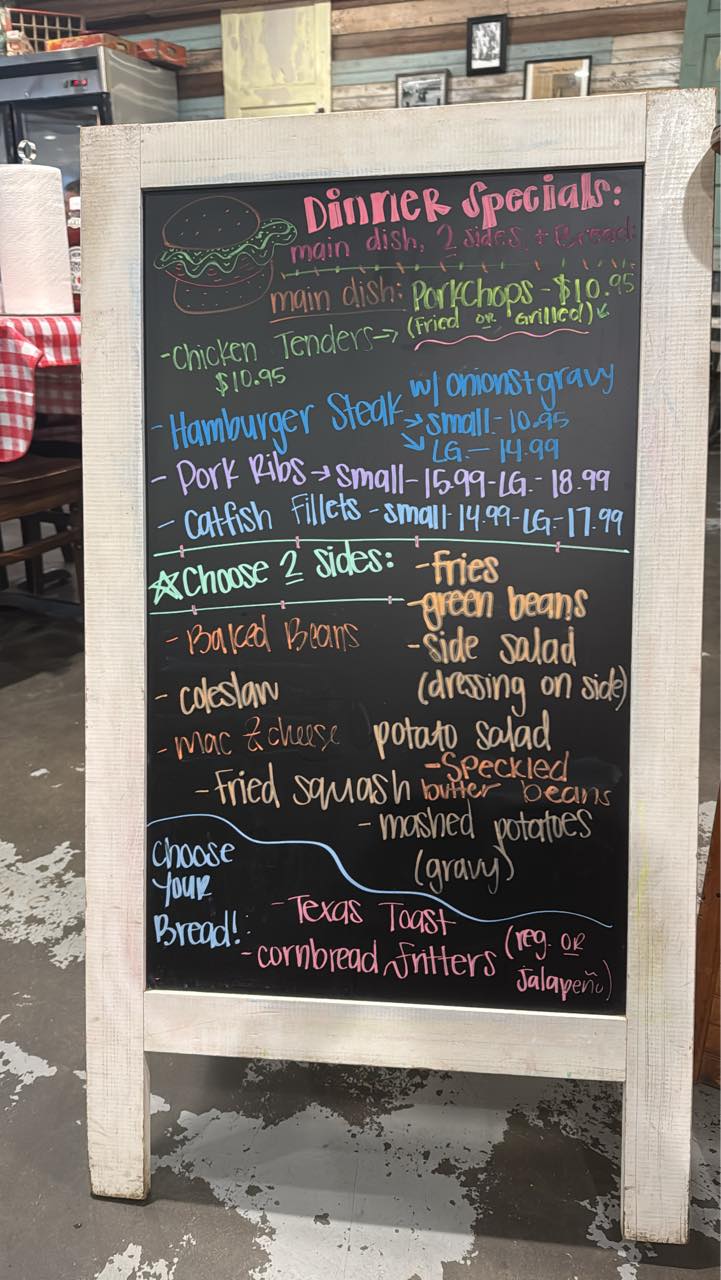 Dinner Specials:
main dish, 2 sides, + Bread:
main dish: PorkChops - $10.95
(Fried or Grilled)
- Chicken Tenders →
$10.95
- Hamburger Steak w/ onions + gravy
→ small - 10.95
→ LG. - 14.99
- Pork Ribs → small - 15.99 - LG. - 18.99
- Catfish Fillets - small - 14.99 - LG. - 17.99
☆ Choose 2 sides:
- Fries
- green beans
- Baked Beans
- side salad
(dressing on side)
- coleslaw
- mac & cheese
potato salad
- Fried squash
- Speckled
butter beans
- mashed potatoes
(gravy)
Choose
your
Bread!:
- Texas Toast
- cornbread fritters (reg. or
jalapeño)